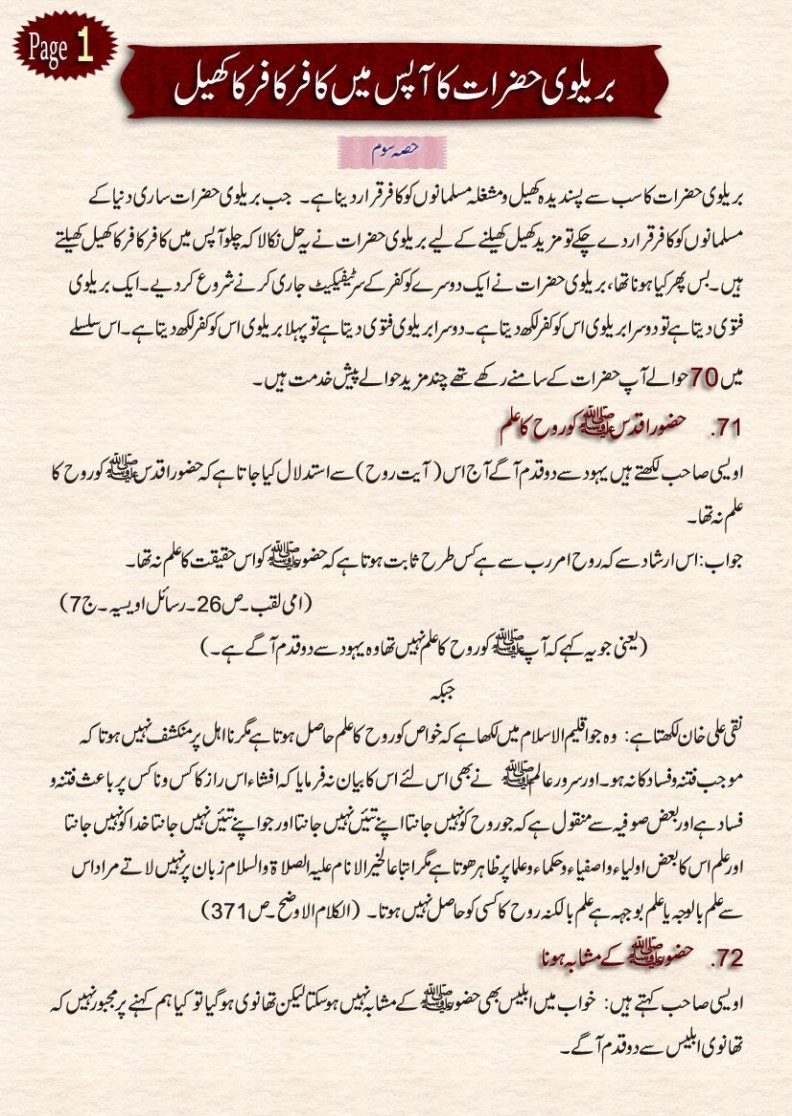 Page 1
بریلوی حضرات کا آپس میں کافر کافر کا کھیل
حصہ سوم
بریلوی حضرات کا سب سے پسندیدہ کھیل و مشغلہ مسلمانوں کو کافر قرار دینا ہے۔ جب بریلوی حضرات ساری دنیا کے
مسلمانوں کو کافر قرار دے چکے تو مزید کھیل کھیلنے کے لیے بریلوی حضرات نے یہ حل نکالا کہ چلو آپس میں کافر کافر کا کھیل کھیلتے
ہیں۔ بس پھر کیا ہونا تھا، بریلوی حضرات نے ایک دوسرے کو کفر کے سرٹیفیکیٹ جاری کرنے شروع کردیے۔ ایک بریلوی
فتوی دیتا ہے تو دوسرا بریلوی اس کو کفر لکھ دیتا ہے۔ دوسرا بریلوی فتوی دیتا ہے تو پہلا بریلوی اس کو کفر لکھ دیتا ہے۔ اس سلسلے
میں 70 حوالے آپ حضرات کے سامنے رکھے تھے چند مزید حوالے پیش خدمت ہیں۔
71. حضور اقدس ﷺ کو روح کا علم
اویسی صاحب لکھتے ہیں یہود سے دو قدم آگے آج اس (آیت روح) سے استدلال کیا جاتا ہے کہ حضور اقدس ﷺ کو روح کا
علم نہ تھا۔
جواب: اس ارشاد سے کہ روح امر رب سے ہے کس طرح ثابت ہوتا ہے کہ حضور ﷺ کو اس حقیقت کا علم نہ تھا۔
(امی لقب۔ ص 26۔ رسائل اویسیہ۔ ج 7)
(یعنی جو یہ کہے کہ آپ ﷺ کو روح کا علم نہیں تھا وہ یہود سے دو قدم آگے ہے۔)
جبکہ
نقی علی خان لکھتا ہے: وہ جو اقلیم الاسلام میں لکھا ہے کہ خواص کو روح کا علم حاصل ہوتا ہے مگر نااہل پر منکشف نہیں ہوتا کہ
موجب فتنہ و فساد کا نہ ہو۔ اور سرور عالم ﷺ نے بھی اس لئے اس کا بیان نہ فرمایا کہ افشاء اس راز کا کس و ناکس پر باعث فتنہ و
فساد ہے اور بعض صوفیہ سے منقول ہے کہ جو روح کو نہیں جانتا اپنے تئیں نہیں جانتا اور جو اپنے تئیں نہیں جانتا خدا کو نہیں جانتا
اور علم اس کا بعض اولیاء و اصفیاء و حکماء و علما پر ظاہر ھوتا ہے مگر اتباعا لخیر الانام علیہ الصلاۃ والسلام زبان پر نہیں لاتے مراد اس
سے علم بالوجہ یا علم بوجہہ ہے علم بالکنہ روح کا کسی کو حاصل نہیں ہوتا۔ (الکلام الاوضح۔ ص 371)
72. حضور ﷺ کے مشابہ ہونا
اویسی صاحب کہتے ہیں: خواب میں ابلیس بھی حضور ﷺ کے مشابہ نہیں ہوسکتا لیکن تھانوی ہوگیا تو کیا ہم کہنے پر مجبور نہیں کہ
تھانوی ابلیس سے دو قدم آگے۔